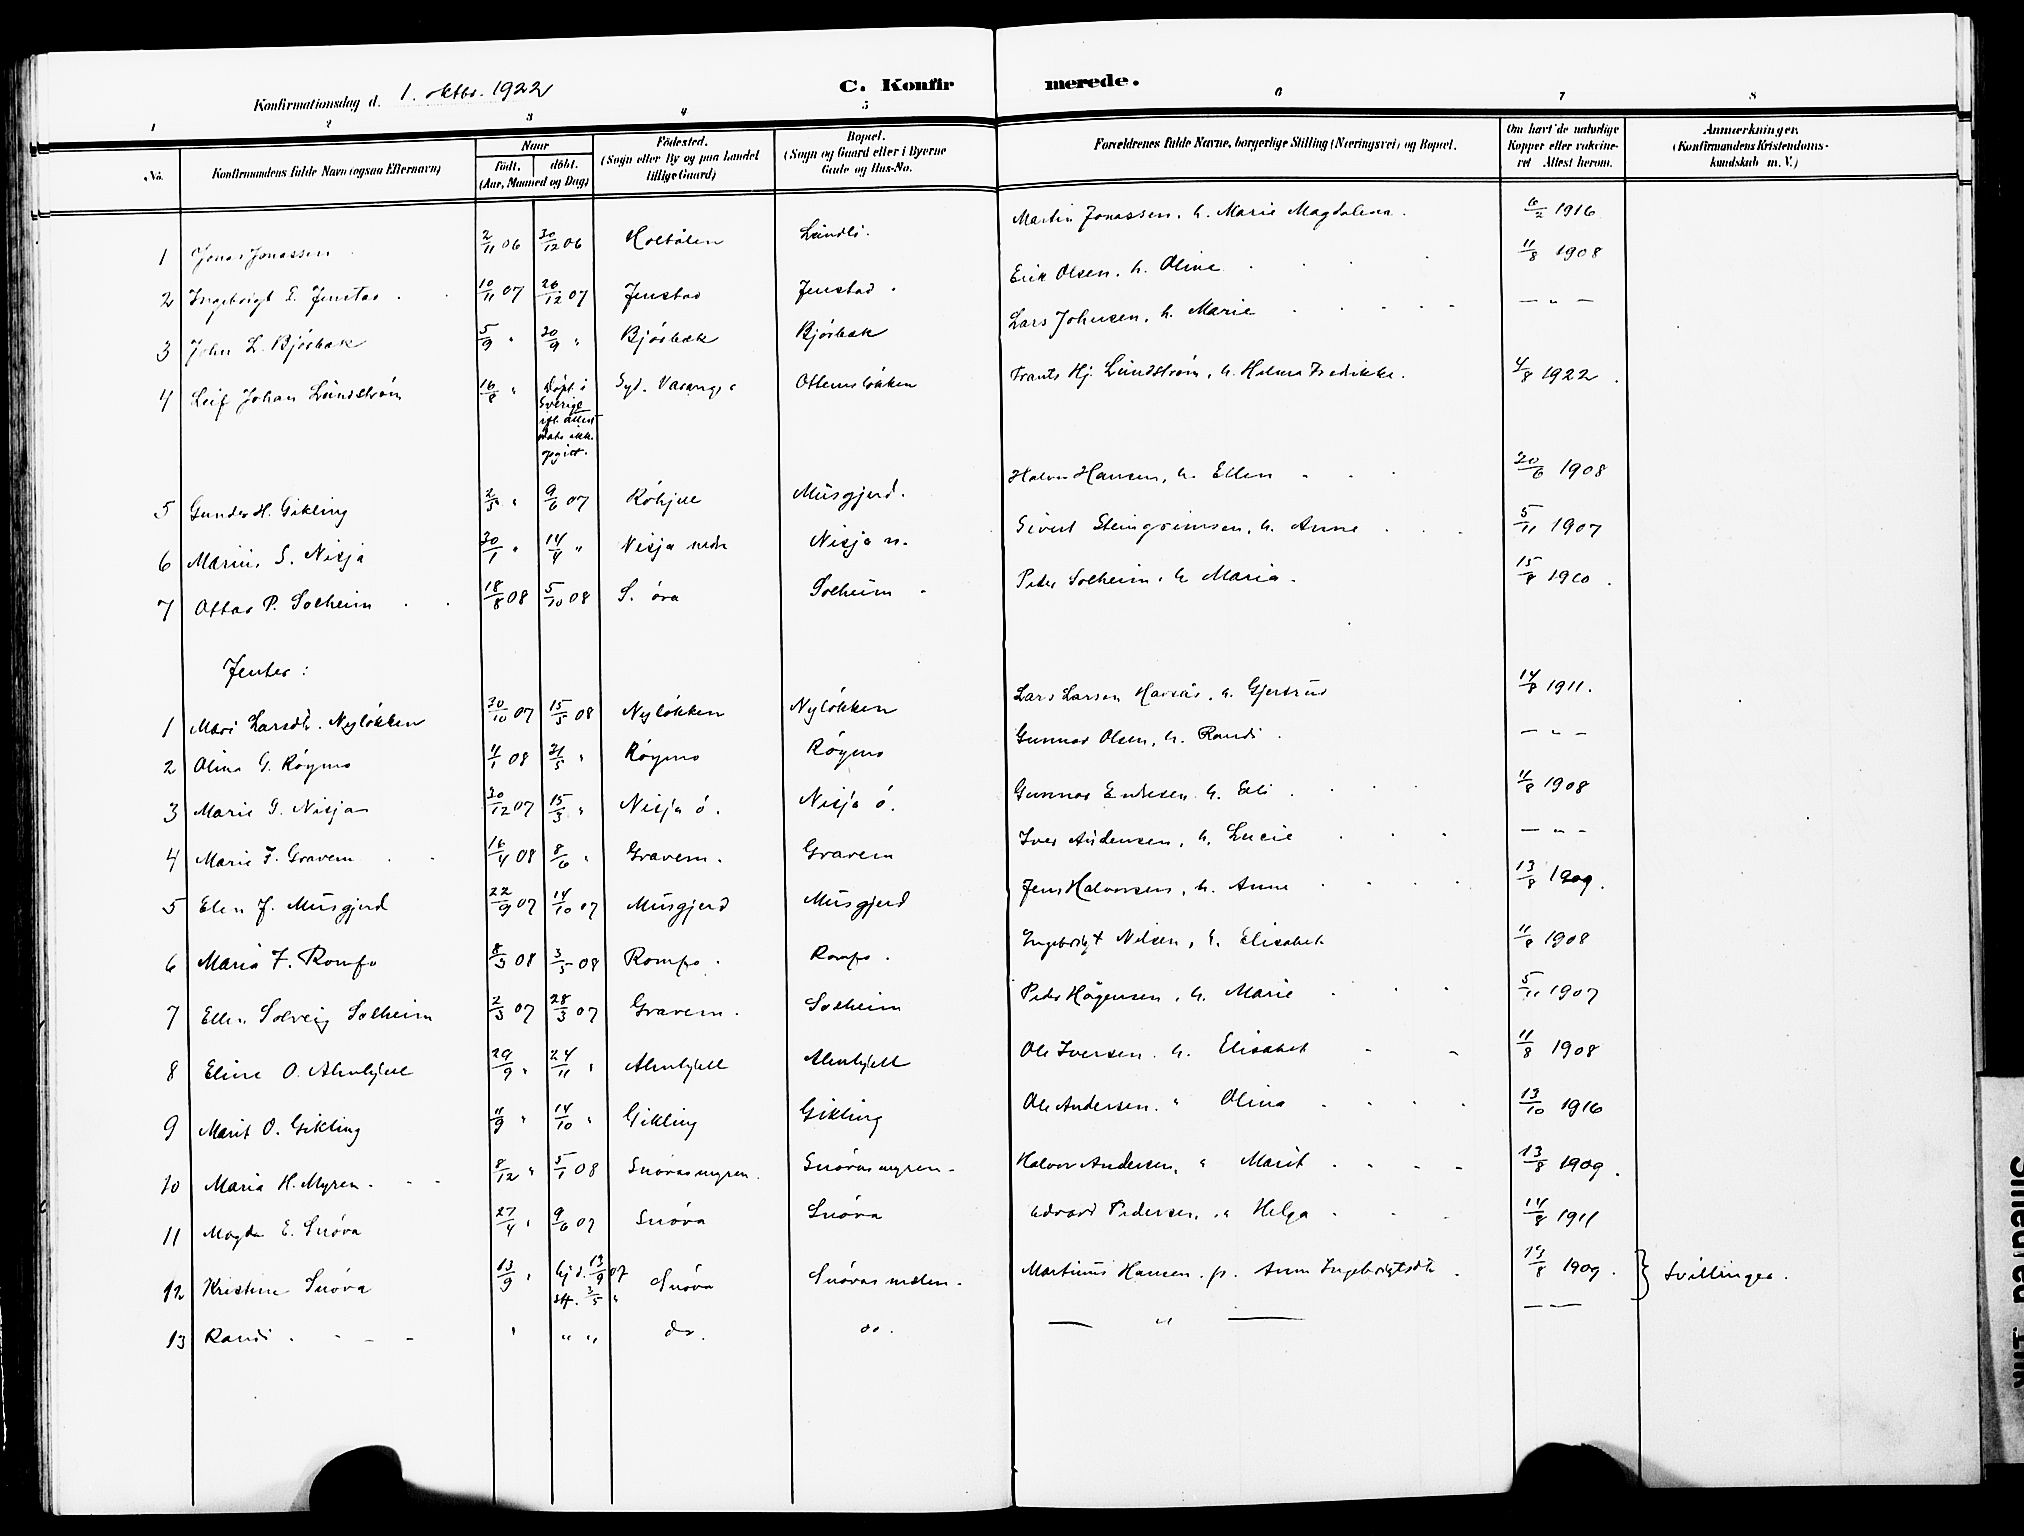 C. Konfirmerede.
Konfirmationsdag d. 1. oktbr. 1922
1 2 3 4 5 6 7 8
No. Konfirmandens fulde Navn (ogsaa Efternavn) Naar født, døbt. (Aar, Maaned og Dag) Fødested. (Sogn eller By og paa Landet tillige Gaard) Bopæl. (Sogn og Gaard eller i Byerne Gade og Hus-No. Forældrenes fulde Navne, borgerlige Stilling (Næringsvei) og Bopæl. Om havt de naturlige Kopper eller vaccineret Attest herom. Anmærkninger. (Konfirmandens Kristendomskundskab m. V.)
1 Jonas Jonassen 2/11 06 30/12 06 Holtålen Lundli. Martin Jonassen, h. Marie Magdalena. 6/2 1916
2 Ingebrigt E. Jenstad 10/11 07 26/12 07 Jenstad Jenstad Erik Olsen, h. Oline 11/8 1908
3 John L. Bjørbæk 5/9 " " Bjørbæk Bjørbæk Lars Johnsen, h. Marie — " —
4 Leif Johan Lundstrøm 16/8 " Døpt i Sverige Syd. Varanger Ottemsløkken Frants Hj. Lundstrøm, h. Halma Fredrikke. 4/8 1922
5 Gunder H. Gikling " 9/6 07 Musgjerd. Halvor Hansen, h. Ellen 1908
6 Marius S. Nisja 30/1 " 14/4 " Nisja nedre Nisja n. Sivert Steingrimsen, h. Anne 5/11 1907
7 Ottar P. Solheim 18/8 08 5/10 08 S. øra Solheim Peder Solheim, h. Maria. 15/8 1910
Jenter:
1 Mari Larsdtr. Nyløkken 30/10 07 15/3 08 Nyløkken Nyløkken Lars Larsen, h. Gjertrud 14/8 1911.
2 Olina G. Røymo 4/1 08 " Røymo Røymo Gunnar Olsen, h. Randi — " —
3 Marie G. Nisja 30/12 07 15/3 " Nisja ø. Nisja ø. Gunnar Endresen, h. Eli 11/8 1908
4 Marie I. Gravem 16/4 08 8/6 " Gravem. Gravem Iver Audensen, h. Lucie — " —
5 Elen J. Musgjerd 22/9 07 14/10 07 Musgjerd Musgjerd Jens Halvorsen, h. Anne 13/8 1909.
6 Maria I. Romfo 8/3 08 3/5 08 Romfo. Romfo. Ingebrigt Nilsen, h. Elisabet 11/8 1908
7 Ellen Solveig Solheim 2/3 07 28/3 07 Gravem. Solheim Peder Hågensen, h. Marie 5/11 1907
8 Eline O. Almhjell 29/9 " 24/11 " Almhjell Almhjell Ole Iversen. h. Elisabet 11/8 1908
9 Marit O. Gikling 11/9 " 14/10 " Gikling Gikling Ole Andersen. " Olina 13/10 1916
10 Maria H. Myren 8/12 " 5/1 08 Snøvasmyren. Snøvasmyren Halvor Andersen, " Marit 13/8 1909.
11 Magda E. Snøva 27/4 " 9/6 07 Snøva Snøva Edvard Pedersen, " Helga 14/8 1911
12 Kristine Snøva 13/9 " hjd. 13/9 07 Snøva Snøvasmelen. Martinus Hansen. p. Anne Ingebrigtsdtr. 13/8 1909. } Tvillinger.
13 Randi " " " do. do. — " — — —